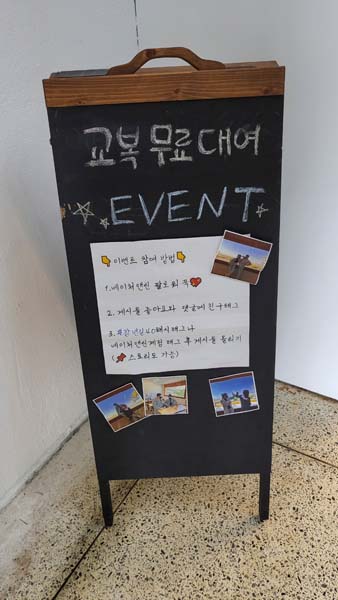 교복 무료 대여
EVENT
이벤트 참여 방법
1. 네이처앤씬 팔로워 꾹
2. 게시물 좋아요와 댓글에 친구태그
3. #감년감40해시태그나
네이처앤씬계정 태그 후 게시물 올리기
( 스토리도 가능)